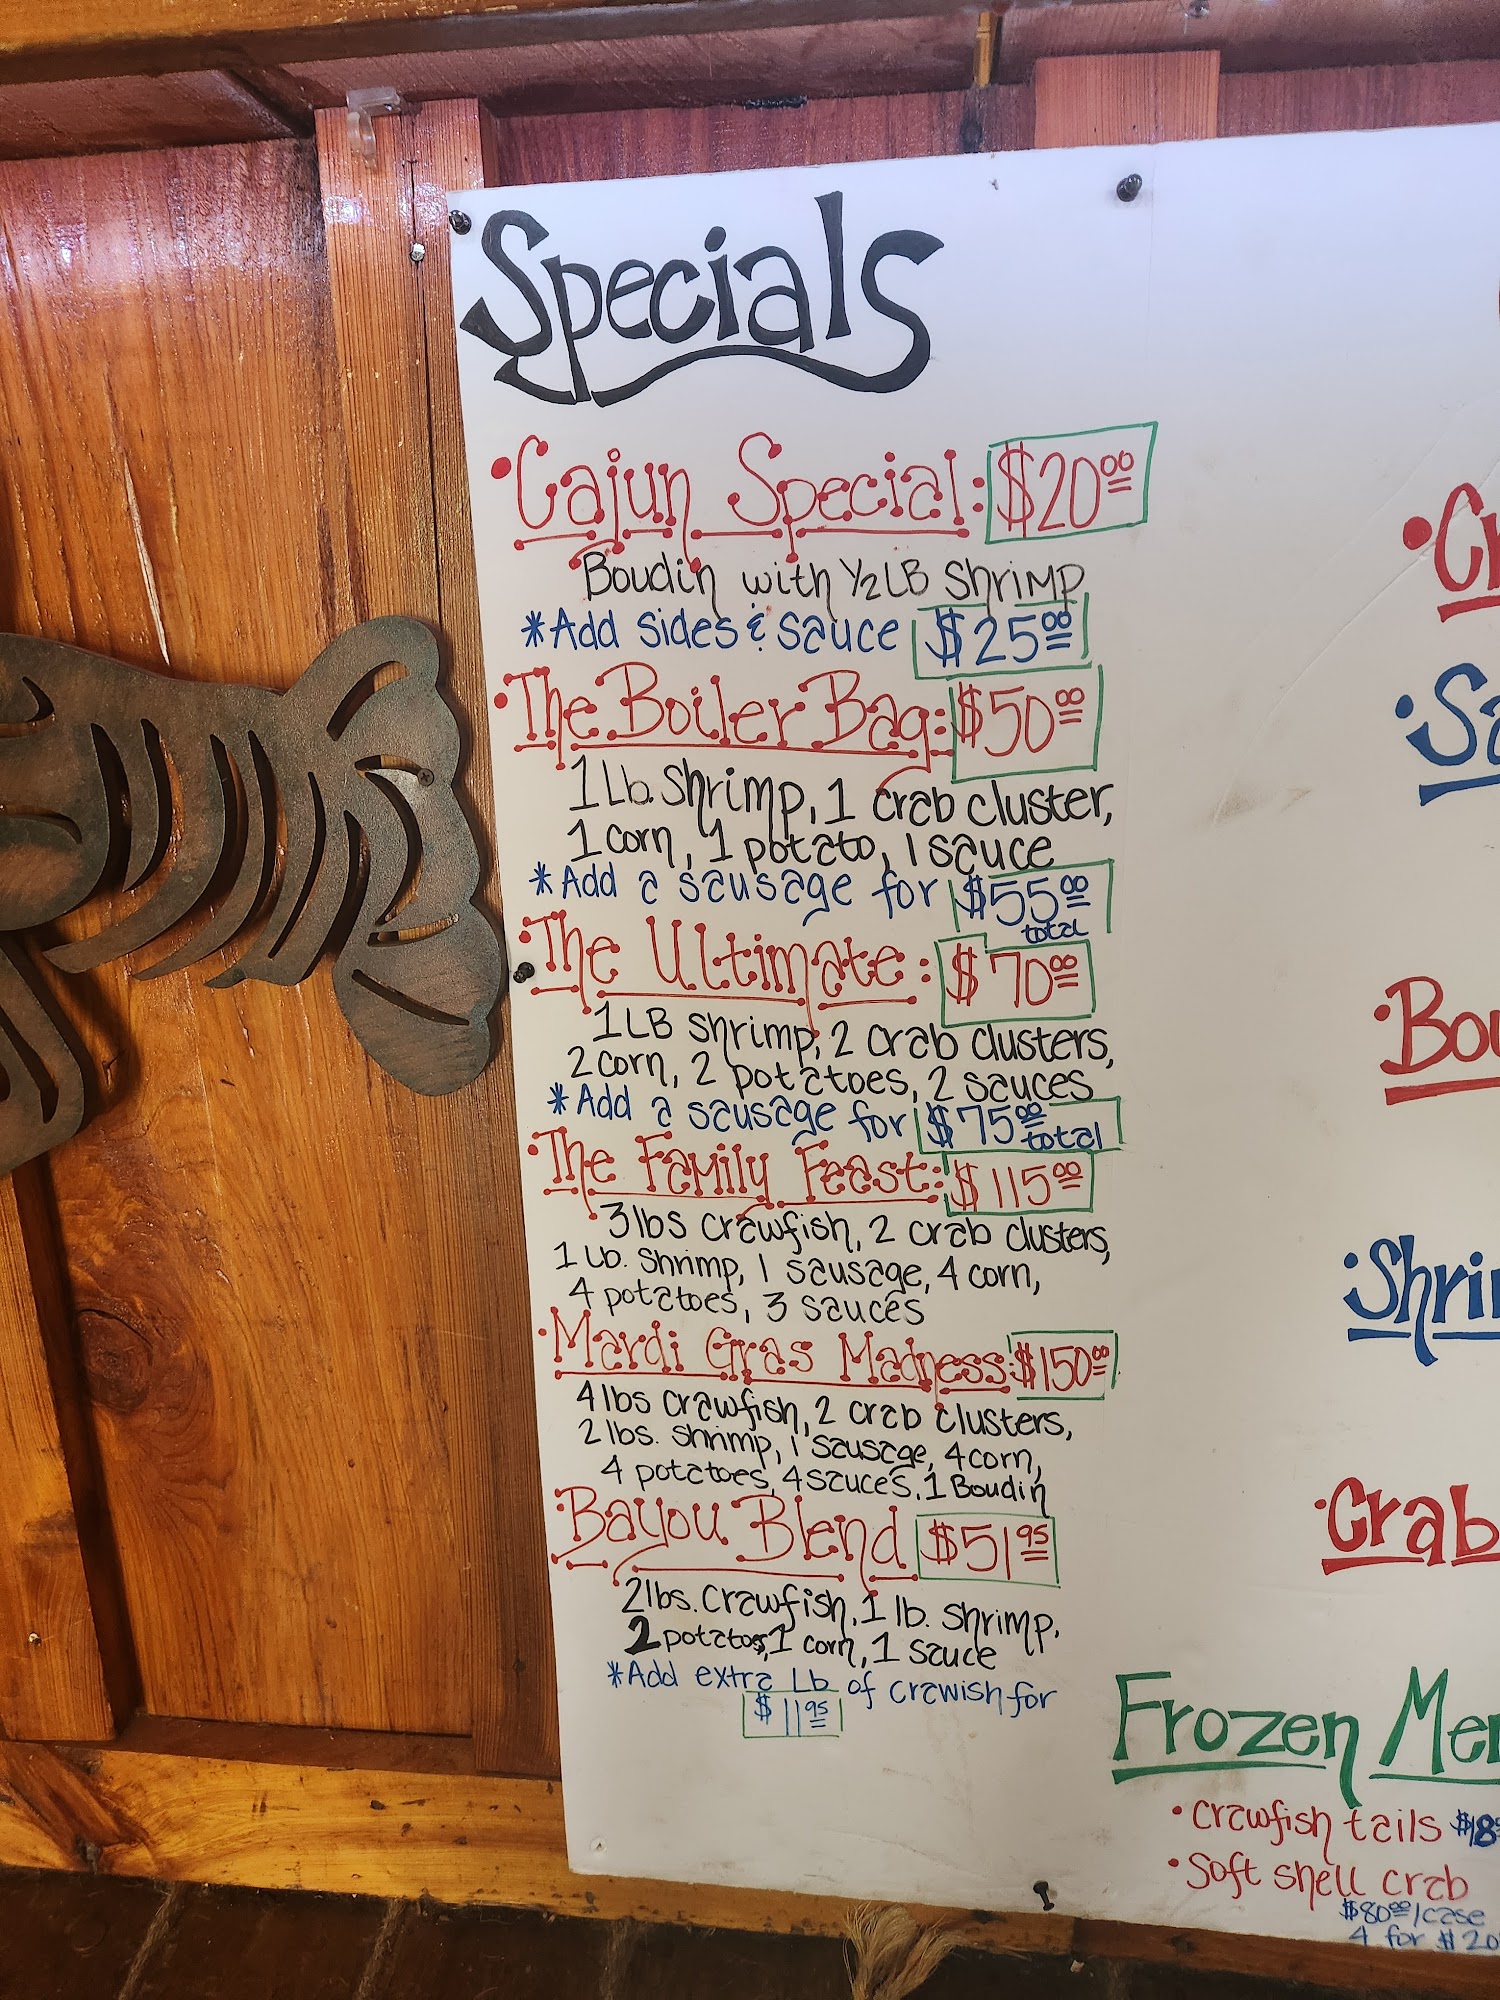 Specials
• Cajun Special: $20.00
Boudin with 1/2 LB Shrimp
*Add sides & sauce $25.00
• The Boiler Bag: $50.00
1 Lb. Shrimp, 1 crab cluster,
1 corn, 1 potato, 1 sauce
*Add a sausage for $55.00
total
• The Ultimate: $70.00
1 LB Shrimp, 2 crab clusters,
2 corn, 2 potatoes, 2 sauces
*Add a sausage for $75.00 total
• The Family Feast: $115.00
3 lbs crawfish, 2 crab clusters,
1 Lb. Shrimp, 1 sausage, 4 corn,
4 potatoes, 3 sauces
• Mardi Gras Madness: $150.00
4 lbs crawfish, 2 crab clusters,
2 lbs. shrimp, 1 sausage, 4 corn,
4 potatoes, 4 sauces, 1 Boudin
• Bayou Blend $51.95
2 lbs. crawfish, 1 lb. shrimp,
2 potatoes, 1 corn, 1 sauce
*Add extra Lb of crawish for
$11.95
• Cr
• Sa
• Bou
• Shri
• Crab
Frozen Me
• Crawfish tails $18
• Soft shell crab
$80.00/case
4 for $20